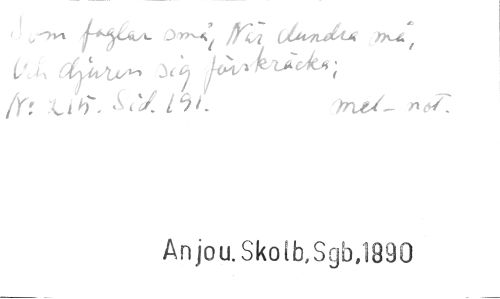 Som foglar små, När dundra må,
Och djuren sig förskräcka;
N: 215. Sid. 191. mel- not.
Anjou. Skolb, Sgb, 1890